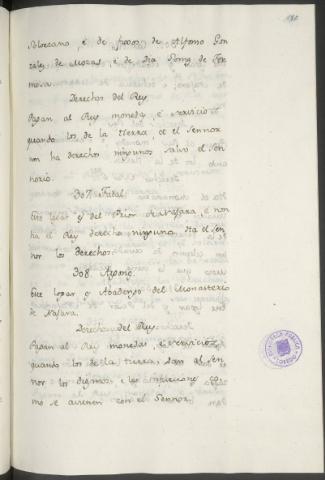 Solorzano, è de fixos de Alfonso Gon
zalez de Mozas, è de Dia Gomez de Tor
Derechos del Rey
Pagan al Rey moneda è servicios
quando los de la tierra et el Sennor
non ha derechos ningunos salvo el Sen
norio.
307. Fadal
Este lugar es del Prior de Nafara, è non
ha el Rey derecho ninguno. Ha el Sen
nor los Derechos.
308. Azpang
Este logar es Abadengo del Monasterio
de Nafara.
Derechos del Rey
Pagan al Rey monedas, è servicios
quando los de la tierra, dan al Sen
nor los diezmos, è las infurciones co
mo se avienen con el Sennor.